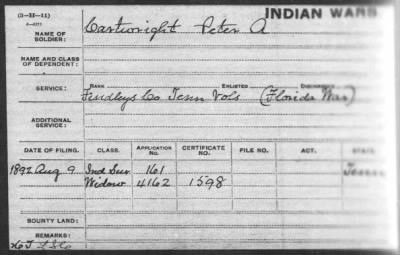 (3-II-11)
INDIAN WARS
NAME OF SOLDIER: Cartwright Peter A
NAME AND CLASS OF DEPENDENT:
RANK ENLISTED DISCHARGED
SERVICE: Findleys Co Tenn Vols (Florida War)
ADDITIONAL SERVICE:
DATE OF FILING. CLASS. APPLICATION No. CERTIFICATE NO. FILE NO. ACT. STATE
1892 Aug 9 Ind Sur 161 Tenn
Widow 4162 1598
BOUNTY LAND:
REMARKS: